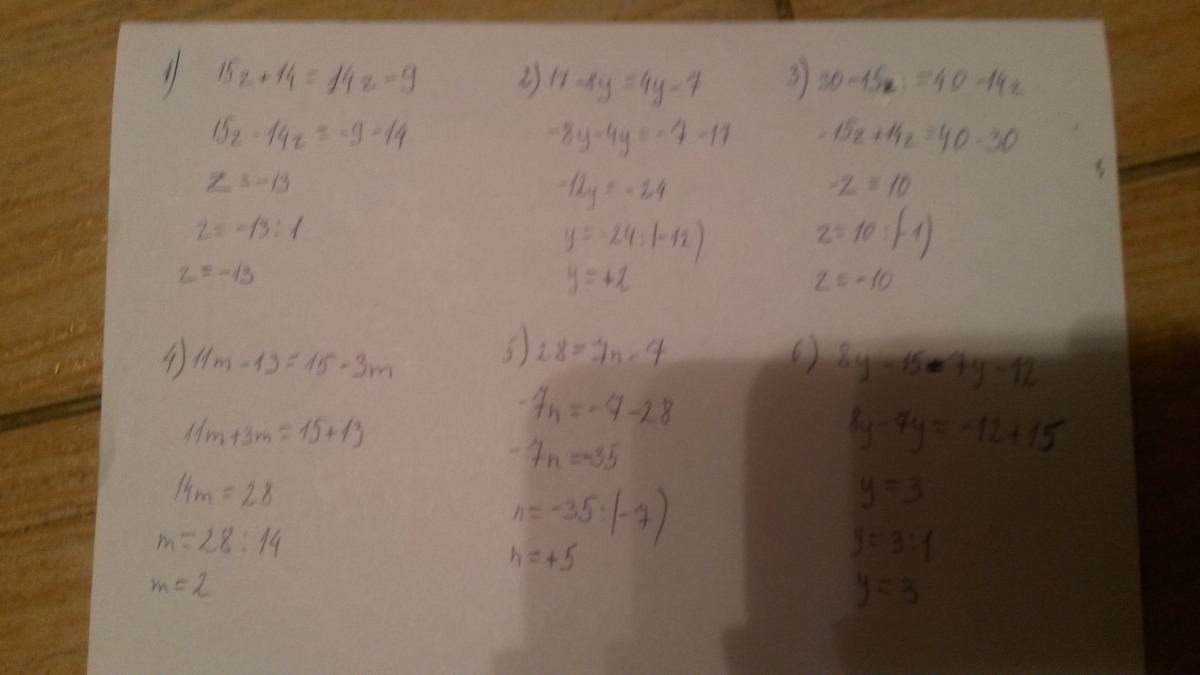 1) 15z+14=14z-9
15z-14z=-9-14
z=-13
z=-13:1
z=-13
2) 17-8y=4y-7
-8y-4y=-7-17
-12y=-24
y=-24:(-12)
y=+2
3) 30-15z=40-14z
-15z+14z=40-30
-z=10
z=10:(-1)
z=-10
4) 11m-13=15-3m
11m+3m=15+13
14m=28
m=28:14
m=2
5) 28=7n-7
-7n=-7-28
-7n=-35
n=-35:(-7)
n=+5
6) 8y-15=7y-12
8y-7y=-12+15
y=3
y=3:1
y=3